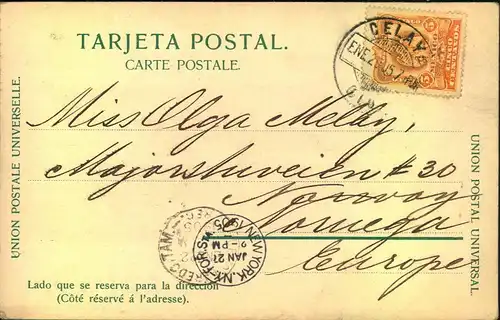 TARJETA POSTAL.
CARTE POSTALE.
CELAYA
ENE 2
Miss Olga Melby,
Majorstuveien # 30
Norway
Noruega
Europe
UNION POSTALE UNIVERSELLE.
UNION POSTAL UNIVERSAL.
NEW YORK, N.Y.
JAN 27
1905
Lado que se reserva para la dirección
(Côté réservé á l'adresse).